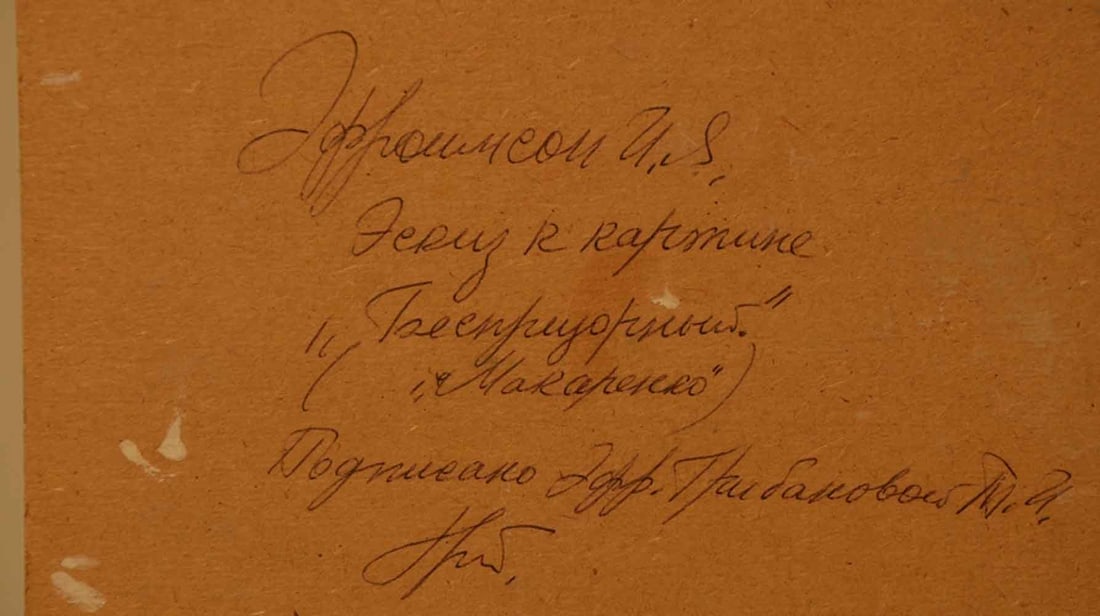 Эфроимсон И.Я.
Эскиз к картине
„Беспризорный."
(„Макаренко")
Подписано Эфр. Грибановой Т.И.